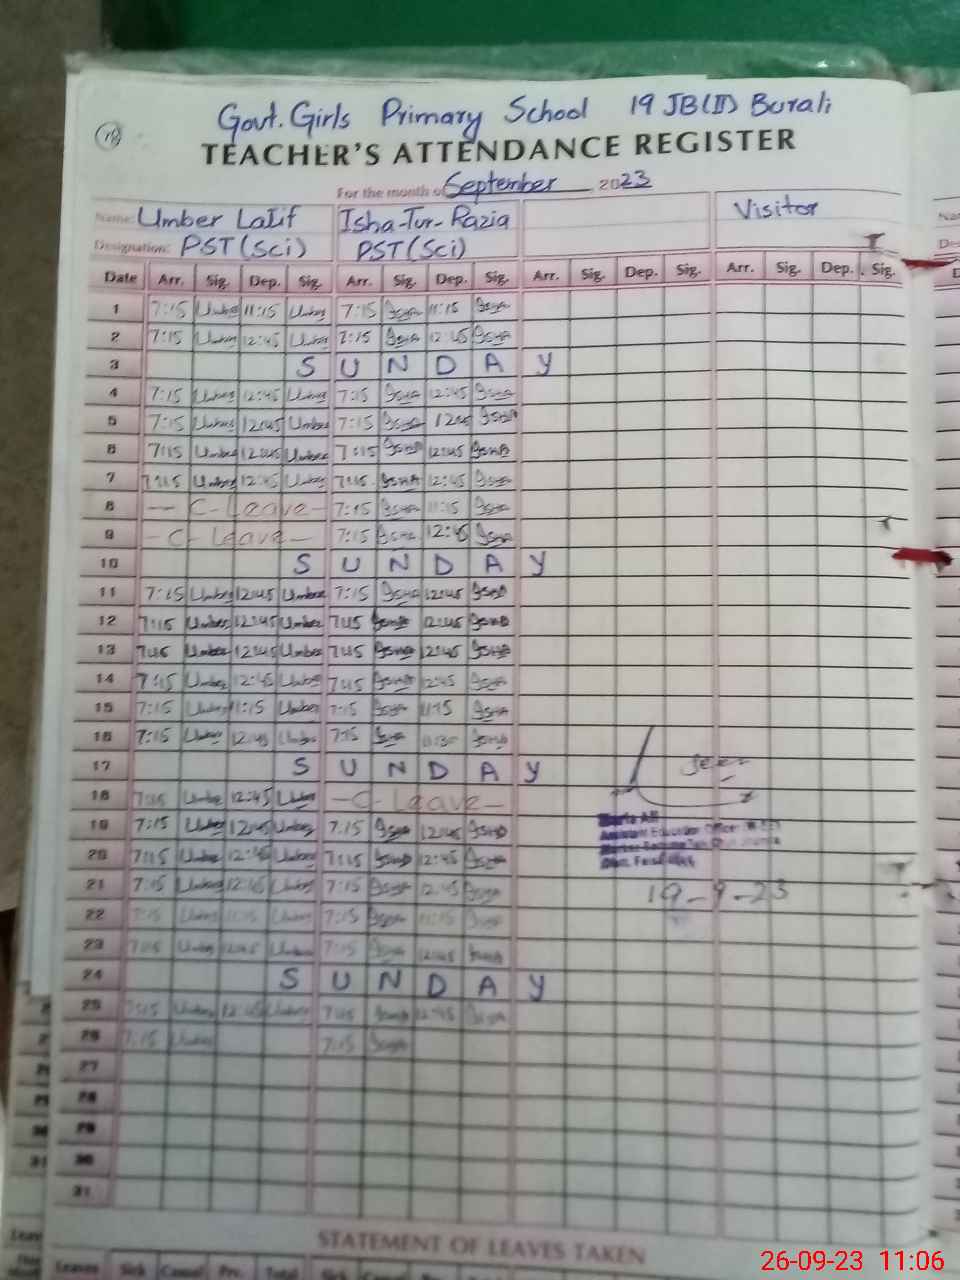 18
Govt. Girls Primary School 19 JB(II) Burali
TEACHER'S ATTENDANCE REGISTER
For the month of September 2023
Name: Umber Latif Isha-Tur-Razia Visitor
Designation: PST(Sci) PST(Sci)
Date Arr. Sig. Dep. Sig. Arr. Sig. Dep. Sig. Arr. Sig. Dep. Sig. Arr. Sig. Dep. Sig.
1 7:15 Umber 11:15 Umber 7:15 Isha 11:15 Isha
2 7:15 Umber 12:45 Umber 7:15 Isha 12:45 Isha
3 S U N D A Y
4 7:15 Umber 12:45 Umber 7:15 Isha 12:45 Isha
5 7:15 Umber 12:45 Umber 7:15 Isha 12:45 Isha
6 7:15 Umber 12:45 Umber 7:15 Isha 12:45 Isha
7 7:15 Umber 12:45 Umber 7:15 Isha 12:45 Isha
8 - C-Leave - 7:15 Isha 11:15 Isha
9 - C-Leave - 7:15 Isha 12:45 Isha
10 S U N D A Y
11 7:15 Umber 12:45 Umber 7:15 Isha 12:45 Isha
12 7:15 Umber 12:45 Umber 7:15 Isha 12:45 Isha
13 7:15 Umber 12:45 Umber 7:15 Isha 12:45 Isha
14 7:15 Umber 12:45 Umber 7:15 Isha 12:45 Isha
15 7:15 Umber 11:15 Umber 7:15 Isha 11:15 Isha
16 7:15 Umber 12:45 Umber 7:15 Isha Isha
17 S U N D A Y Seen
18 7:15 Umber 12:45 Umber - C-Leave -
19 7:15 Umber 12:45 Umber 7:15 Isha 12:45 Isha
Assistant Education Officer
20 7:15 Umber 12:45 Umber 7:15 Isha 12:45 Isha
21 7:15 Umber 12:45 Umber 7:15 Isha 12:45 Isha 19-9-23
22 7:15 Umber 11:15 Umber 7:15 Isha 11:15 Isha
23 7:15 Umber 12:45 Umber 7:15 Isha 12:45 Isha
24 S U N D A Y
25 7:15 Umber 12:45 Umber 7:15 Isha 12:45 Isha
26 7:15 Umber 7:15 Isha
27
28
29
30
31
STATEMENT OF LEAVES TAKEN
Leaves Sick Casual Prv. Total Sick Casual Prv. Total
26-09-23 11:06